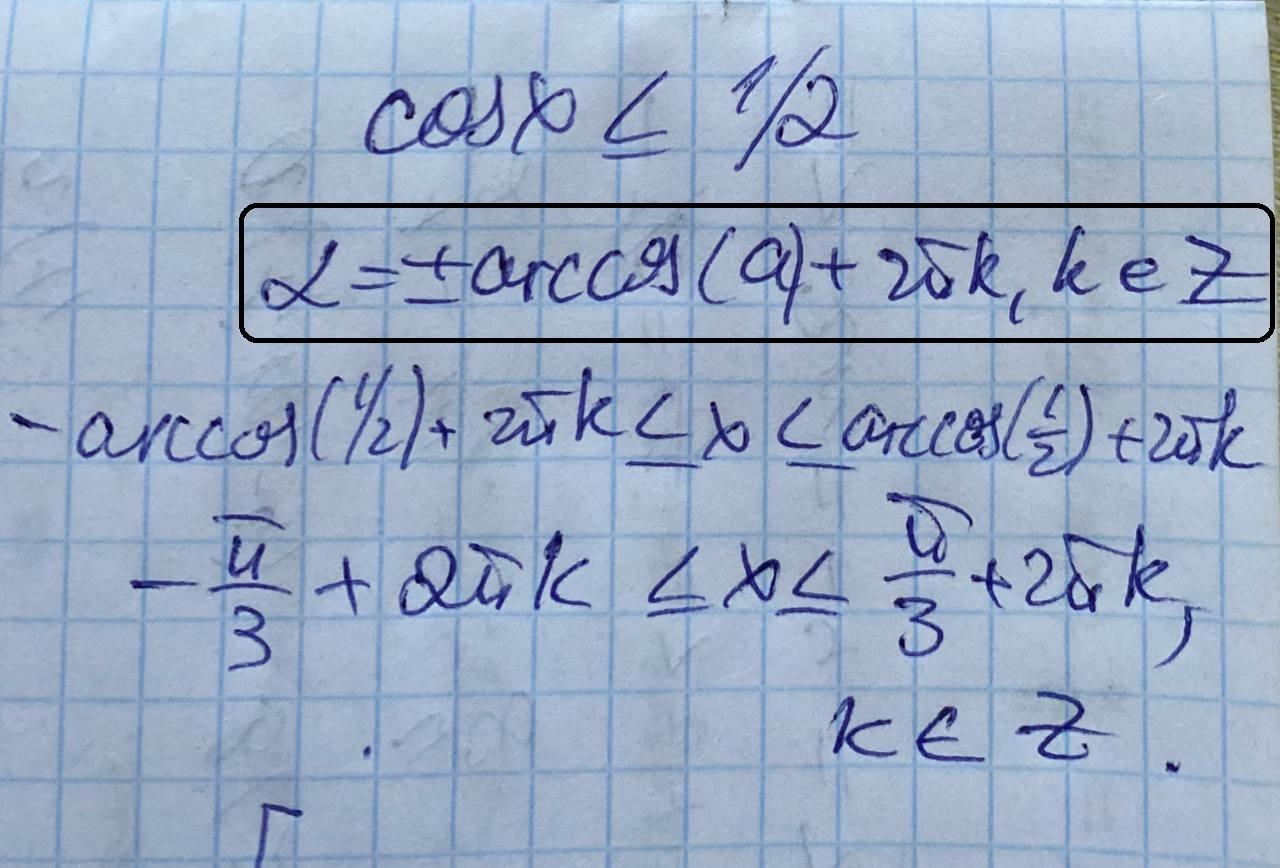 cos x ≤ 1/2
α = ± arccos(a) + 2πk, k ∈ Z
- arccos(1/2) + 2πk ≤ x ≤ arccos(1/2) + 2πk
- π/3 + 2πk ≤ x ≤ π/3 + 2πk,
k ∈ Z.